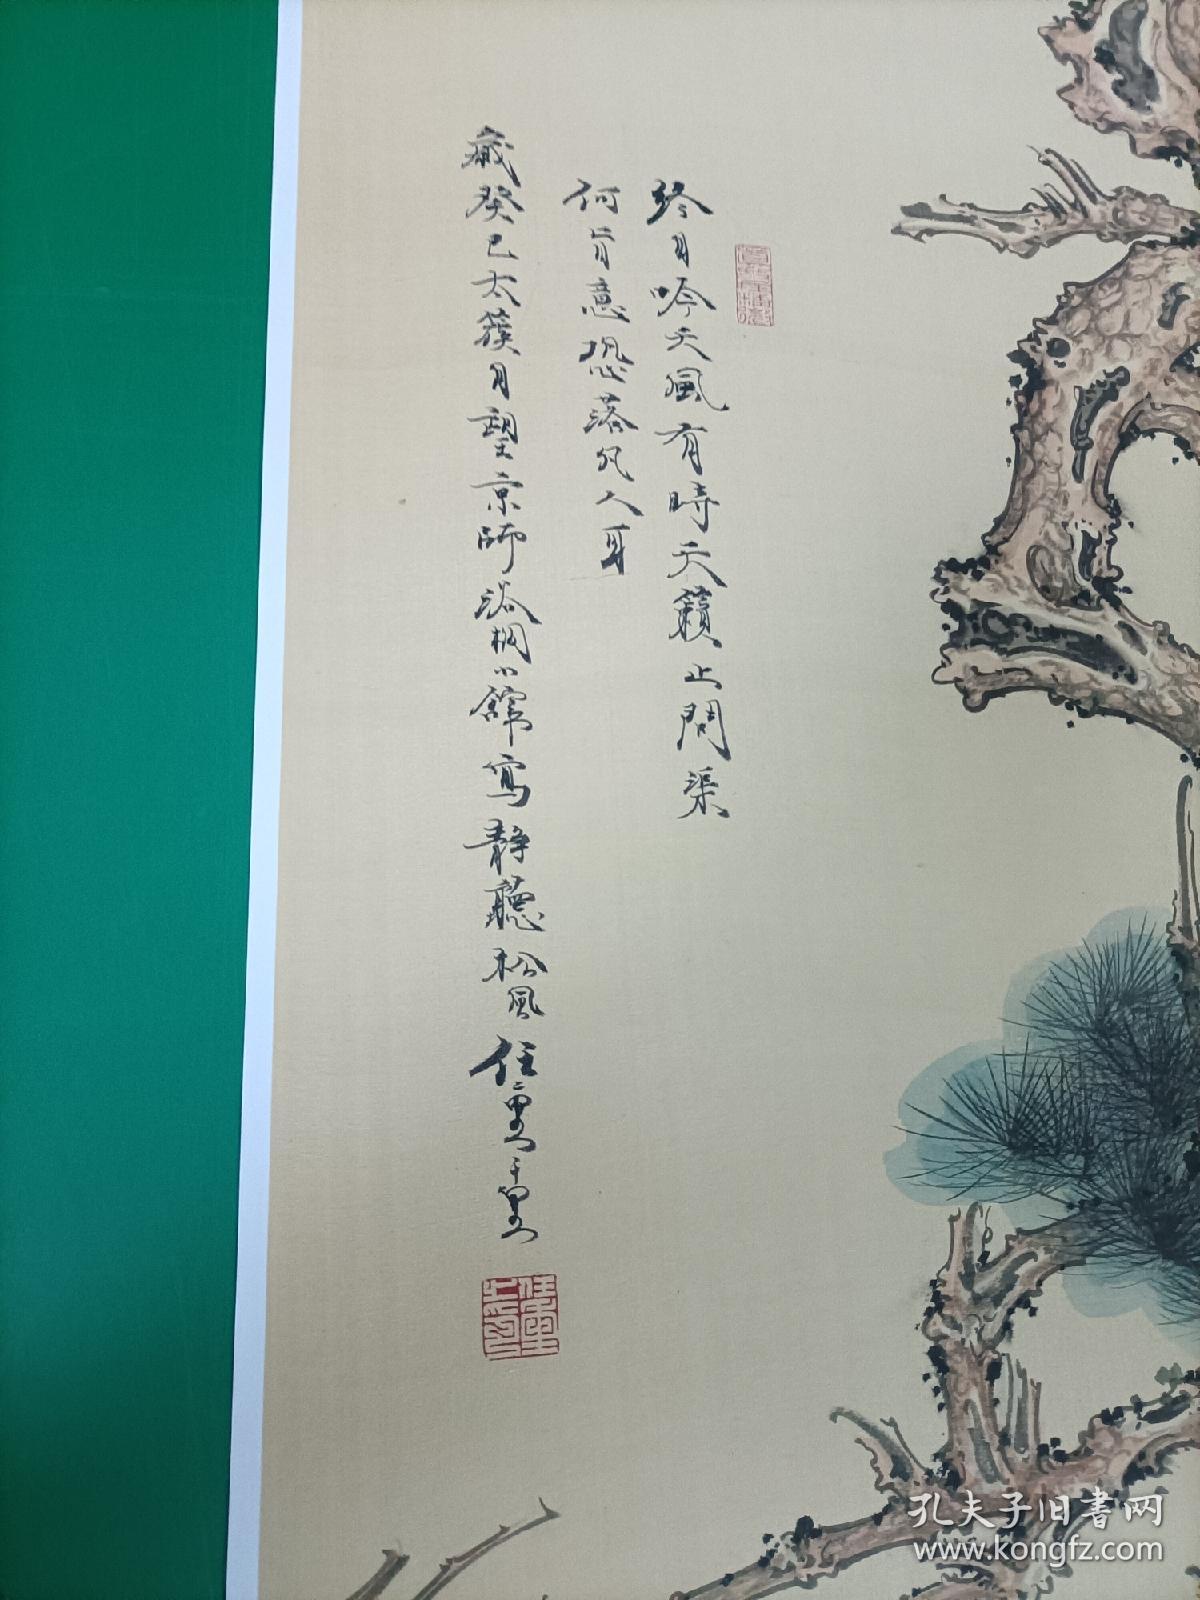 終日吟天風有時天籟止問渠
何肯意恐落凡人耳
歲癸巳太簇月望京師洛桐小館寫靜聽松風任重
孔夫子旧书网
www.kongfz.com